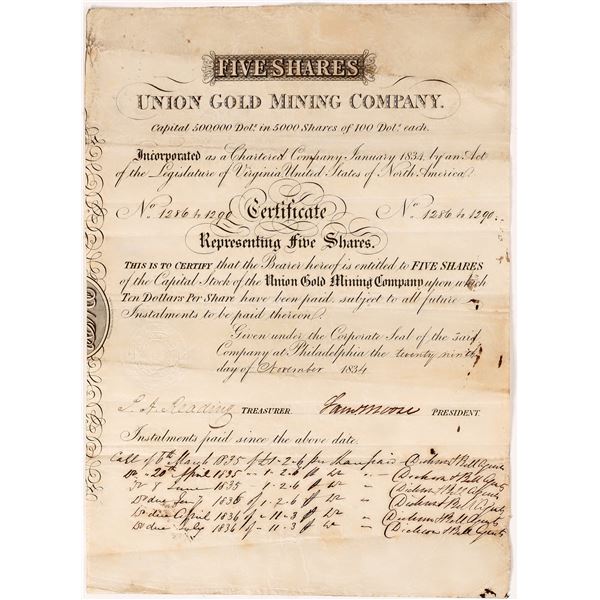 FIVE SHARES
UNION GOLD MINING COMPANY.
Capital 500,000 Dolˢ. in 5000 Shares of 100 Dolˢ. each.
Incorporated as a Chartered Company January 1834, by an Act
of the Legislature of Virginia United States of North America.
Nº 1286 to 1290 Certificate Nº 1286 to 1290.
Representing Five Shares.
THIS IS TO CERTIFY that the Bearer hereof is entitled to FIVE SHARES
of the Capital Stock of the Union Gold Mining Company upon which
Ten Dollars Per Share have been paid, subject to all future
Instalments to be paid thereon.
Given under the Corporate Seal of the said
Company at Philadelphia the twenty ninth
day of November 1834
P. A. Reading TREASURER. Saml Moore PRESIDENT.
Instalments paid since the above date.
Call of March 1835 of £1-2-6 per Share paid Dickson & Bell Agents
Dº 20th April 1835 - 1-2-6 Dº Dickson & Bell Agents
Dº 8 1835 - 1-2-6 Dº Dickson & Bell Agents
Dº due Jany 1836 of 1.2.6 Dº Dickson & Bell Agents
Dº due April 1836 of - 11-3 Dº Dickson & Bell Agents
Dº due July 1836 of - 11-3 Dº Dickson & Bell Agents